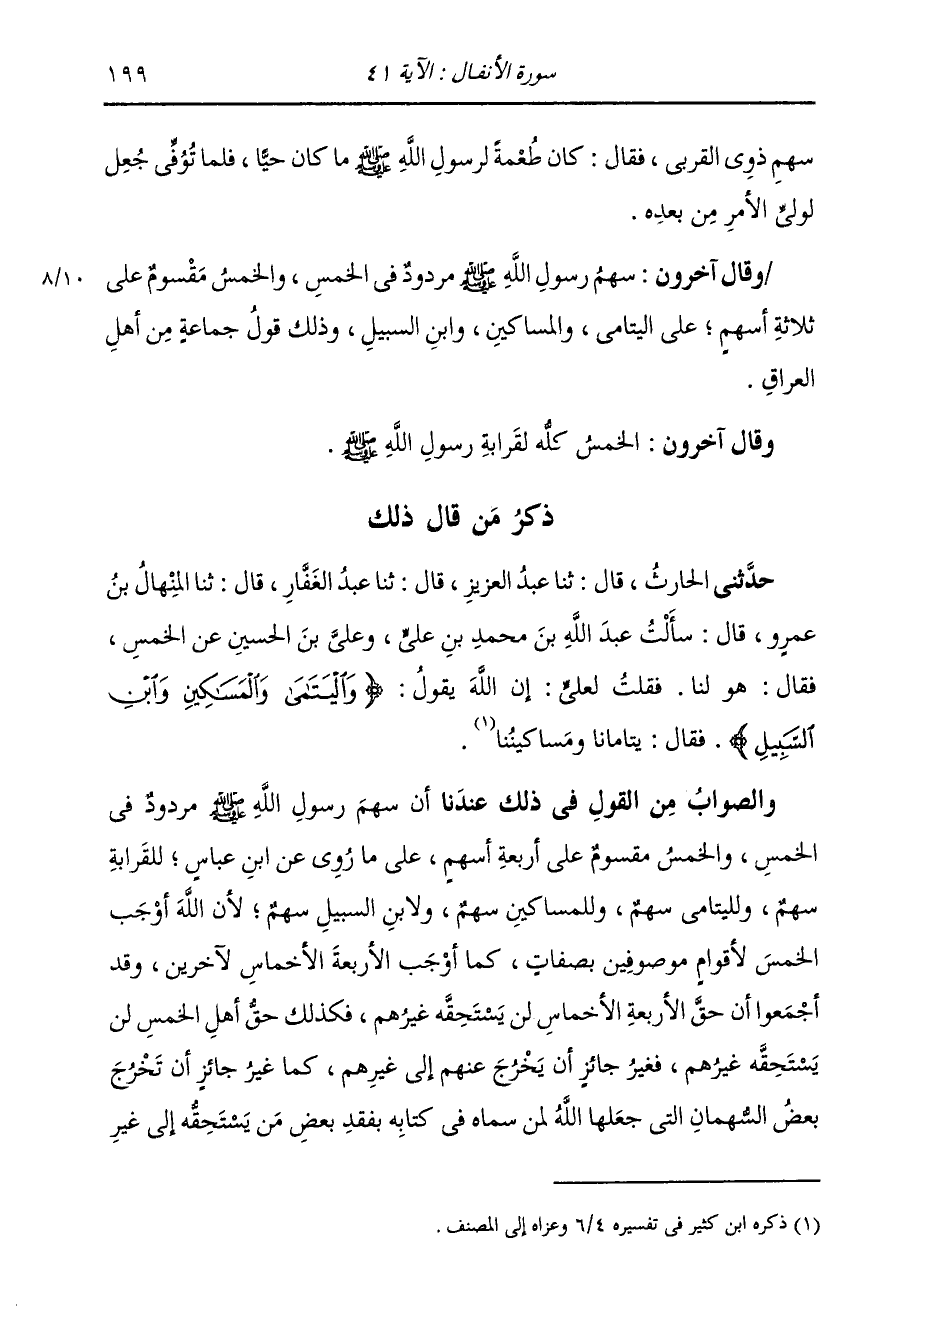 سورة الأنفال : الآية ٤١
١٩٩
سهمِ ذوِى القربى ، فقال : كان طُعْمةً لرسولِ اللَّهِ ﷺ ما كان حيًّا ، فلما تُوُفِّى جُعِل
لولىِّ الأمرِ مِن بعدِه .
/وقال آخرون : سهمُ رسولِ اللَّهِ ﷺ مردودٌ فى الخمسِ ، والخمسُ مَقْسومٌ على
٨/١٠
ثلاثةِ أسهمٍ ؛ على اليتامى ، والمساكينِ ، وابنِ السبيلِ ، وذلك قولُ جماعةٍ مِن أهلِ
العراقِ .
وقال آخرون : الخمسُ كلُّه لقَرابةِ رسولِ اللَّهِ ﷺ .
ذكرُ مَن قال ذلك
حدَّثنى الحارثُ ، قال : ثنا عبدُ العزيزِ ، قال : ثنا عبدُ الغَفَّارِ ، قال : ثنا المِنْهالُ بنُ
عمرٍو ، قال : سأَلْتُ عبدَ اللَّهِ بنَ محمدِ بنِ علىٍّ ، وعلىَّ بنَ الحسينِ عن الخمسِ ،
فقال : هو لنا . فقلتُ لعلىٍّ : إن اللَّهَ يقولُ : ﴿ وَٱلْيَتَـٰمَىٰ وَٱلْمَسَـٰكِينِ وَٱبْنِ
ٱلسَّبِيلِ ﴾ . فقال : يتامانا ومَساكينُنا(١) .
والصوابُ مِن القولِ فى ذلك عندَنا أن سهمَ رسولِ اللَّهِ ﷺ مردودٌ فى
الخمسِ ، والخمسُ مقسومٌ على أربعةِ أسهمٍ ، على ما رُوِى عن ابنِ عباسٍ ؛ للقَرابةِ
سهمٌ ، ولليتامى سهمٌ ، وللمساكينِ سهمٌ ، ولابنِ السبيلِ سهمٌ ؛ لأن اللَّهَ أوْجَب
الخمسَ لأقوامٍ موصوفِين بصفاتٍ ، كما أوْجَب الأربعةَ الأخماسِ لآخرين ، وقد
أجْمَعوا أن حقَّ الأربعةِ الأخماسِ لن يَسْتَحِقَّه غيرُهم ، فكذلك حقُّ أهلِ الخمسِ لن
يَسْتَحِقَّه غيرُهم ، فغيرُ جائزٍ أن يَخْرُجَ عنهم إلى غيرِهم ، كما غيرُ جائزٍ أن تَخْرُجَ
بعضُ السُّهمانِ التى جعَلها اللَّهُ لمن سماه فى كتابِه بفقدِ بعضِ مَن يَسْتَحِقُّه إلى غيرِ
(١) ذكره ابن كثير فى تفسيره ٦/٤ وعزاه إلى المصنف .